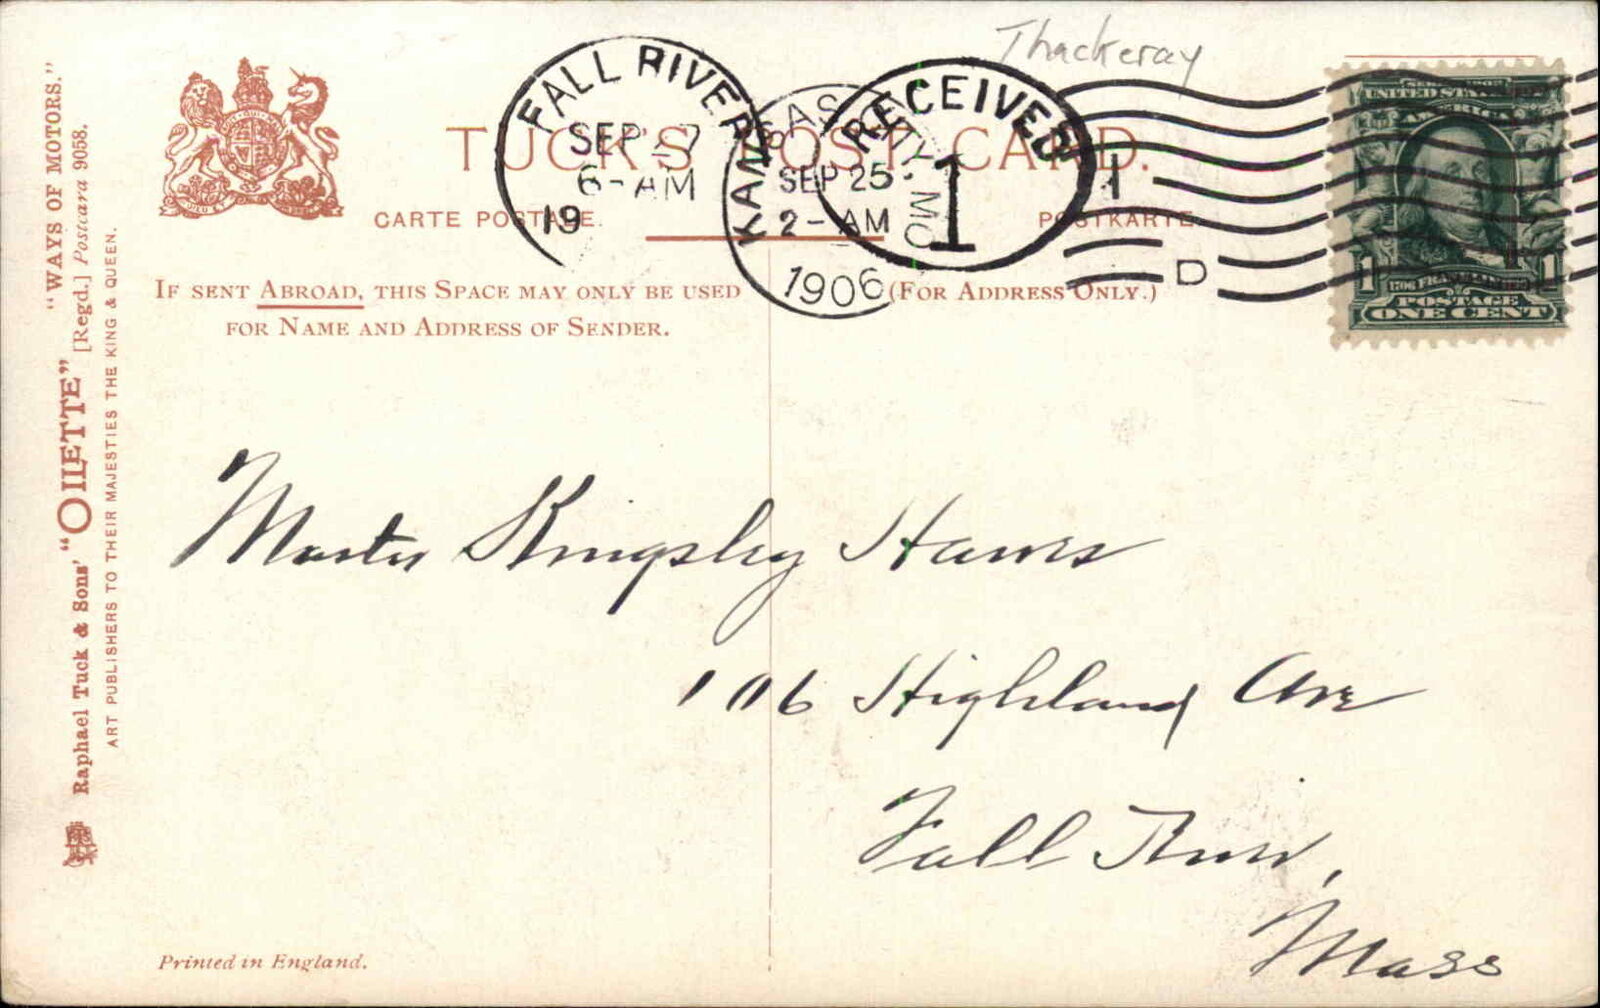 Thackeray
FALL RIVER
SEP 27
6-AM
19
KANSAS CITY, MO
SEP 25
2-AM
1906
RECEIVED
1
1
D
UNITED STATES OF
AMERICA
1706 FRANKLIN
1 1
POSTAGE
ONE CENT
TUCK'S POST CARD.
CARTE POSTALE. POSTKARTE.
IF SENT ABROAD, THIS SPACE MAY ONLY BE USED
FOR NAME AND ADDRESS OF SENDER.
(FOR ADDRESS ONLY.)
"WAYS OF MOTORS."
Raphael Tuck & Sons' "OILETTE" [Regd.] Postcard 9058.
ART PUBLISHERS TO THEIR MAJESTIES THE KING & QUEEN.
Master Kingsley Hawes
106 Highland Ave
Fall River,
Mass
Printed in England.